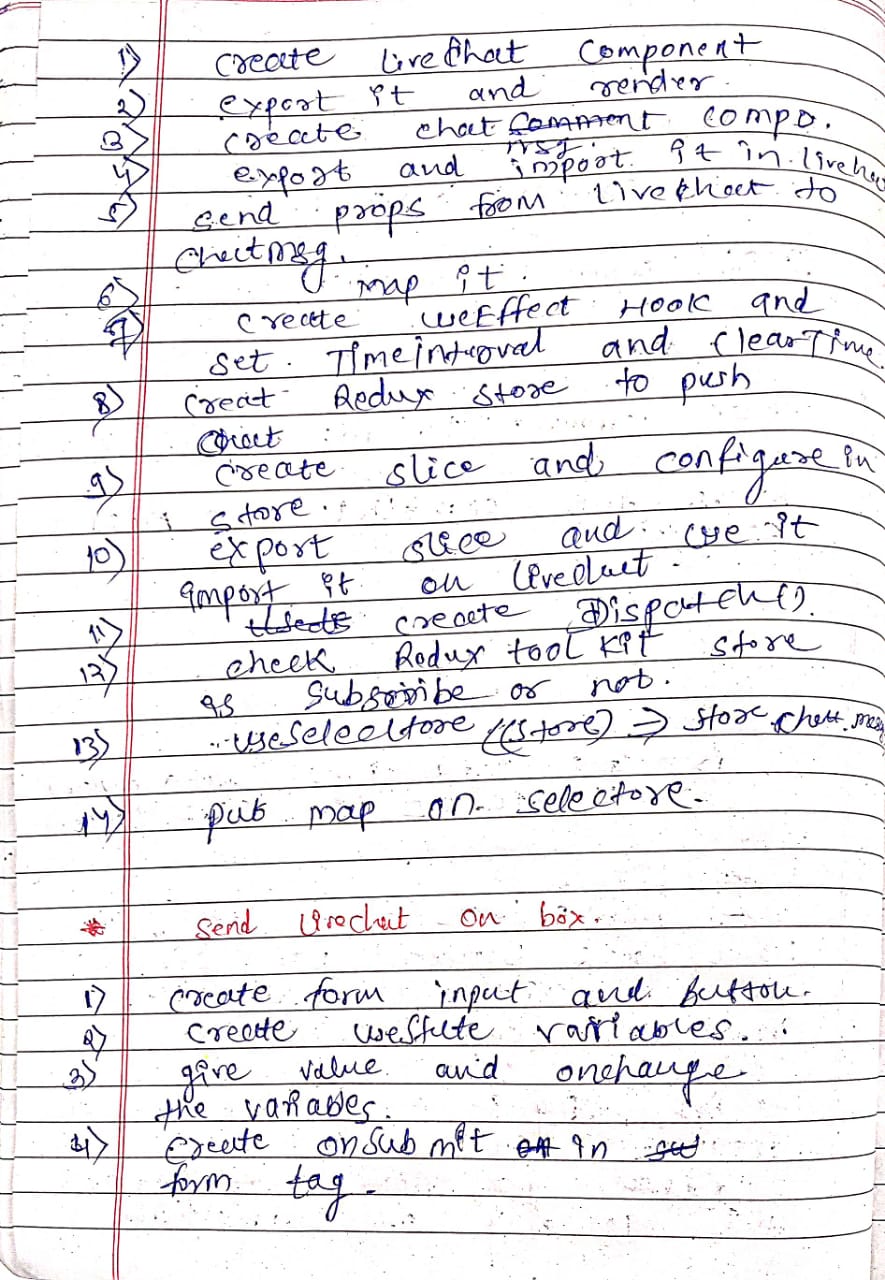 1) create Livechat Component
2) export it and render.
3) create chat Comment compo.
msg.
4) export and import it in. livecha
5) send props from Livechat to
Chatmsg.
6) map it.
7) create useEffect Hook and
set. Timeinterval and ClearTime.
8) Creat Redux store to push
Chat
9) create slice and configure in
store.
10) export slice and use it
import it on Livechat.
11) create Dispatch().
12) check Redux tool kit store
is Subscribe or not.
13) useSelectore ((store) => store.chat.mes
14) put map on selectore.
* Send Livechat on box.
1) create form input and button.
2) Create useState variables.
3) give value and onchange
the variables.
4) Create onSubmit in
form tag.